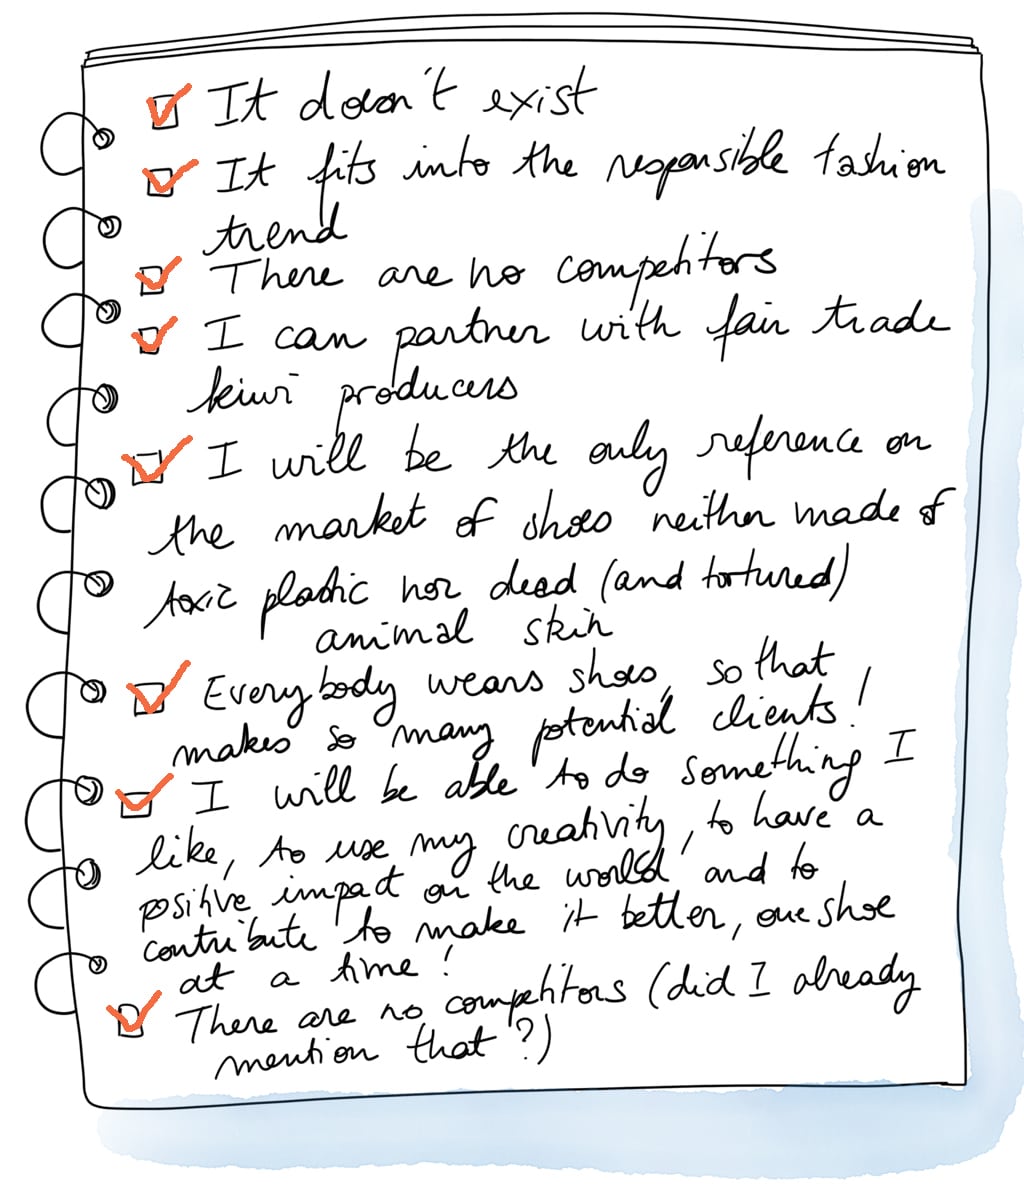 It doesn't exist
It fits into the responsible fashion
trend
There are no competitors
I can partner with fair trade
kiwi producers
I will be the only reference on
the market of shoes neither made of
toxic plastic nor dead (and tortured)
animal skin
Everybody wears shoes, so that
makes so many potential clients!
I will be able to do something I
like, to use my creativity, to have a
positive impact on the world and to
contribute to make it better, one shoe
at a time!
There are no competitors (did I already
mention that?)